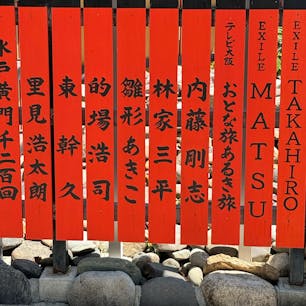 EXILE TAKAHIRO
EXILE MATSU
テレビ大阪
おとな旅あるき旅
内藤剛志
林家三平
雛形あきこ
的場浩司
東幹久
里見浩太朗
水戸黄門千二百回